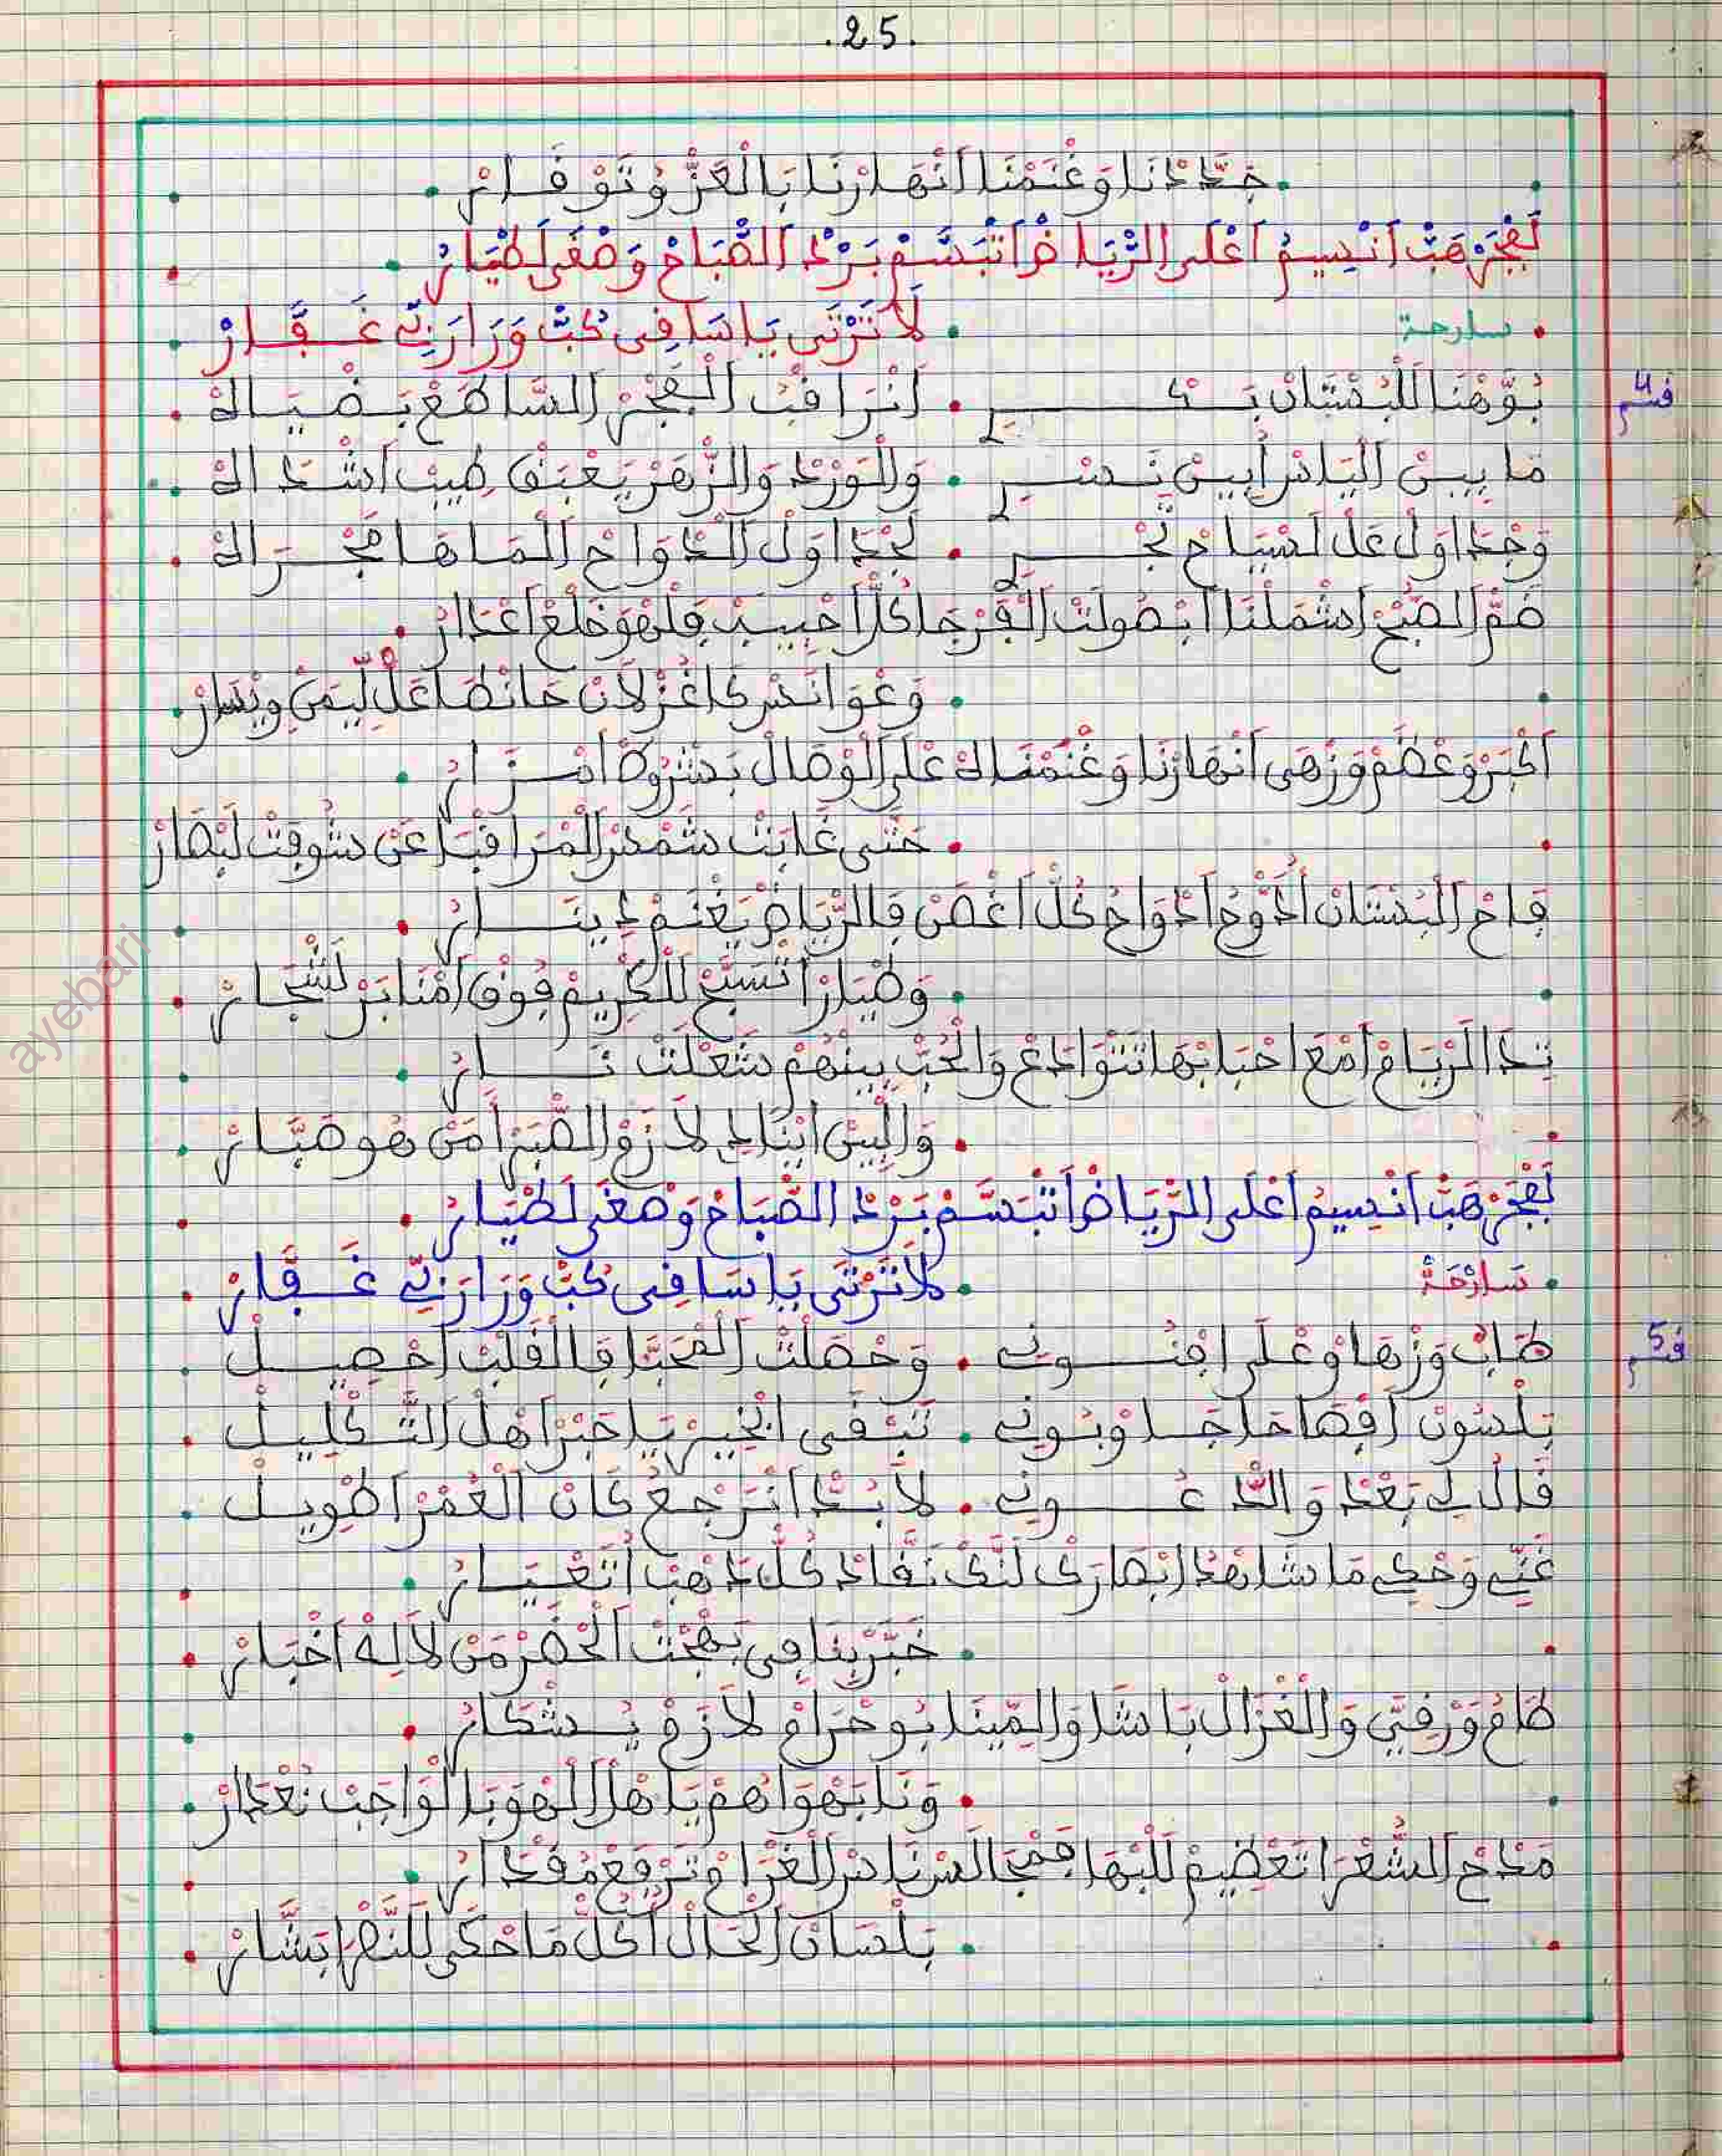 .25.
جَدَّدْنَا وَغْنَمْنَا اَنْهَارْنَا بَالْعَزّْ وُتَوْقَارْ
لَفْجَرْ هَبّْ اَنْسِيمُ اَعْلَى الرّْيَاضْ اَتْبَسَّمْ بَرْدْ اَلصّْبَاحْ وَصْغَى لَطْيَارُ
سارحة
لَا تَرْثَى يَا سَاقِي كُبّْ وَرَا رَبِّي غَفَّارْ
قسم 4
نُوّْهْنَا لَلْبُسْتَانْ بَكْرِي . اَنْرَاقْبُ اَلْفْجَرْ اَلسَّاطَعْ بَضْيَاهْ
مَا بِينْ اَلْيَاسْ اُبِينْ نَسْرِي . وَالْوَرْدْ وَالزّْهَرْ يَعْبَقْ طِيبْ اَشْدَاهْ
وَجْدَاوَلْ عَلْ لَسْيَاحْ تَجْرِي . لَجْدَاوَلْ اَلْدْوَاحْ اَلْمَا هَا مَجْرَاهْ
ضَمّْ اَلصّْبَحْ اَشْمَلْنَا اَبْصُولَتْ اَلْفَرْجَا كُلّْ اَحْبِيبْ فَلْهْوَ خْلَعْ اَعْدَارُ
وَعْوَانَسْ كَاغْزْلَانْ حَانْطَا عَلْ لِيمَنْ وِيْسَارْ
اَكْبَرْ وَعْظَمْ وَزْهَى اَنْهَارْنَا وَغْنَمْنَاهْ عْلَى اَلْوْصَالْ بَشْرُوطْ اَسْرَارُ
حَتَّى غَابَتْ شَمْسْ اَلْمْرَاقْبَا عَنْ شُوفَتْ لَبْصَارْ
فَاحْ اَلْبُسْتَانْ اُدَوّْحْ اَدْوَاحْ كُلّْ اَغْصَنْ فَالرّْيَاضْ يَغْنَمْ دِينَارُ
وَطْيَارْ اَتْسَبَّحْ لَلْكْرِيمْ فُوقْ اَمْنَابَرْ لَشْجَارْ
نَدَا الرّْيَامْ اَمْعَ اَحْبَابْهَا تَتْوَادَعْ وَالْحُبّْ بِينْهُمْ شَعْلَتْ نَارُ
وَالْبِينْ اَيْنَادِي لَا زَمْ الصّْبَرْ اَمَنْ هُو صَبَّارْ
لَفْجَرْ هَبّْ اَنْسِيمُ اَعْلَى الرّْيَاضْ اَتْبَسَّمْ بَرْدْ الصّْبَاحْ وَصْغَى لَطْيَارُ
سَارْحَةْ
لَا تَرْثَى يَا سَاقِي كُبّْ وَرَا رَبِّي غَفَّارْ
قسم 5
طَابْ وَزْهَاوْ عْلَى اَفْنُونِي . وَحْصَلْتْ اَلْمْحَبَّا فَالْقَلْبْ اَحْصِيلْ
بِلْسُونْ اَفْصَاحَا جَاوْبُونِي . تَبْقَى اَبْخِيرْ يَا خَيْرْ اَهْلْ اَلتَّكْلِيلْ
قَالُ لِي بَعْدْ وَالدْعُونِي . لَا بُدّْ اَنْرَجْعُ كَانْ اَلْعُمْرْ اَطْوِيلْ
غَنِّي وَحْكِي مَا شَاهْدْ اَبْصَارَكْ لَنَّكْ نَقَّادْ كُلّْ دْهَبْ اَتْعْيَارُ
خَبَّرْنَا فِي بَهْجَتْ اَلْحْضَرْ مَنْ لَا لِهْ اَخْبَارْ
طَامُ وَرْقِيَّ وَالْغْزَالْ بَاشَا وَالِمِينَا بُوحْرَامْ لَازَمْ يُشْكَارُ
وَنَا بَهْوَاهُمْ يَا هْلْ اَلْهْوَ بَالْوَاجَبْ نُعْدَارْ
مَدْحْ اَلشُّعْرَا تَعْظِيمْ لَلْبْهَا فَمْجَالَسْ نَاسْ اَلْغْرَامْ تَرْفَعْ مُقْدَارُ
بَلْسَانْ اَلْحَالْ اُكُلّْ مَا حْكَى لَلنّْفَرْ اَبْشَارْ
ayebari